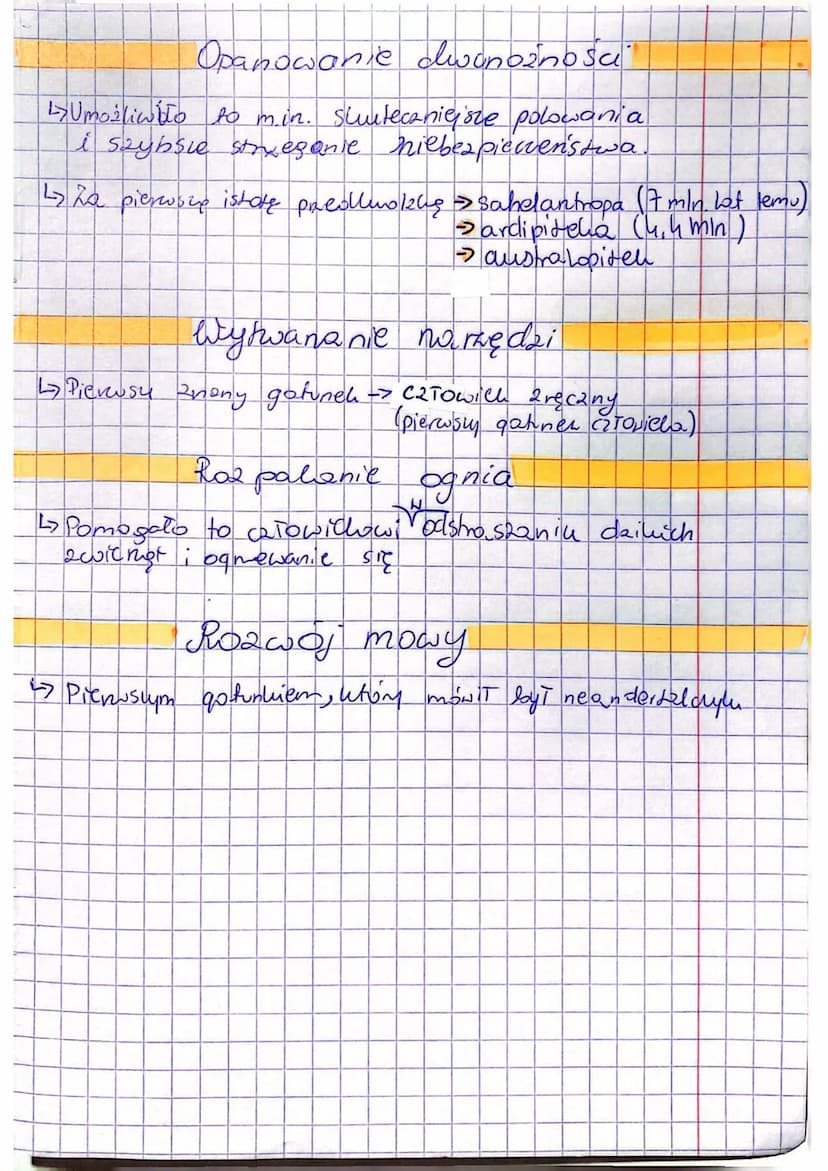 Opanowanie dwunożności
↳Umożliwiło to m.in. skuteczniejsze polowania
i szybsze strzeganie niebezpieczeństwa.
↳ Za pierwszą istotę przedludzką → sahelantropa (7 mln. lat temu)
→ ardipiteka (4,4 mln)
→ australopitek
Wytwarzanie narzędzi
↳ Pierwszy znany gatunek → człowiek zręczny
(pierwszy gatunek człowieka)
Rozpalanie ognia
↳ Pomogało to człowiekowi w odstraszaniu dzikich
zwierząt i ogrzewanie się
Rozwój mowy
↳ Pierwszym gatunkiem, który mówił był neandertalczyk